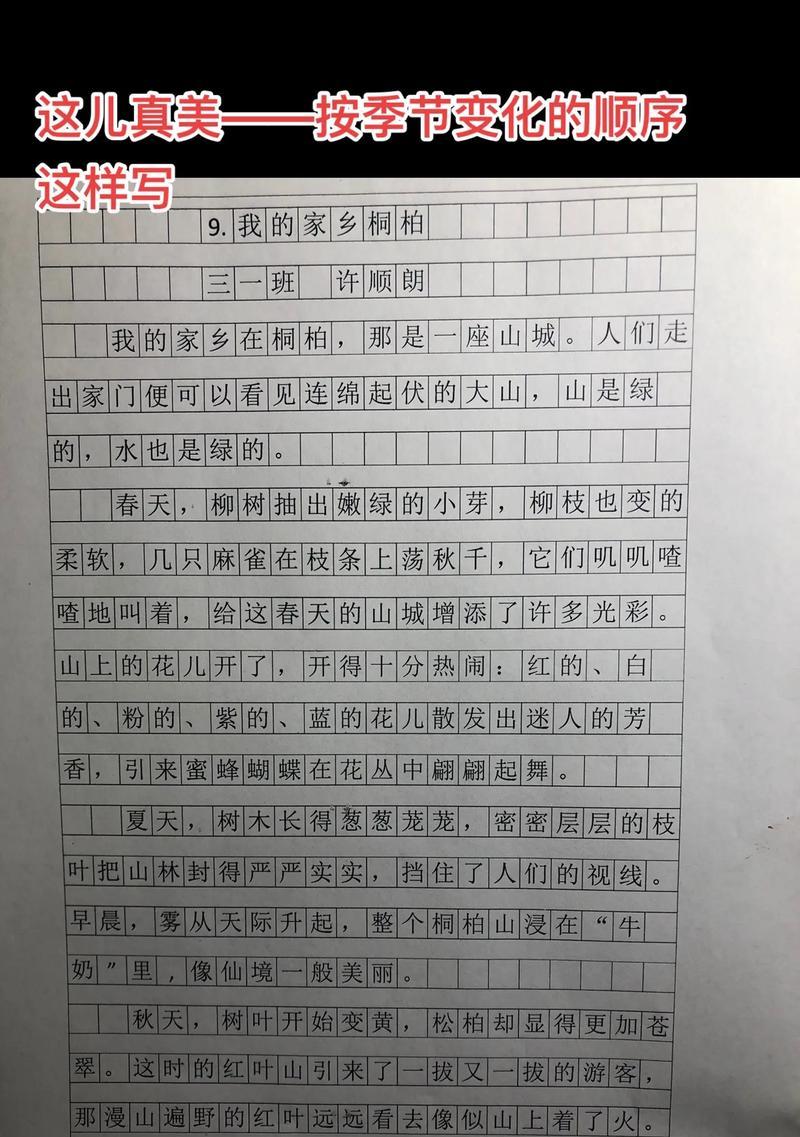 这儿真美——按季节变化的顺序
这样写
9.我的家乡桐柏
三一班 许顺朗
我的家乡在桐柏，那是一座山城。人们走
出家门便可以看见连绵起伏的大山，山是绿
的，水也是绿的。
春天，柳树抽出嫩绿的小芽，柳枝也变的
柔软，几只麻雀在枝条上荡秋千，它们叽叽喳
喳地叫着，给这春天的山城增添了许多光彩。
山上的花儿开了，开得十分热闹：红的、白
的、粉的、紫的、蓝的花儿散发出迷人的芳
香，引来蜜蜂蝴蝶在花丛中翩翩起舞。
夏天，树木长得葱葱茏茏，密密层层的枝
叶把山林封得严严实实，挡住了人们的视线。
早晨，雾从天际升起，整个桐柏山浸在“牛
奶”里，像仙境一般美丽。
秋天，树叶开始变黄，松柏却显得更加苍
翠。这时的红叶山引来了一拔又一拔的游客，
那漫山遍野的红叶远远看去像似山上着了火。